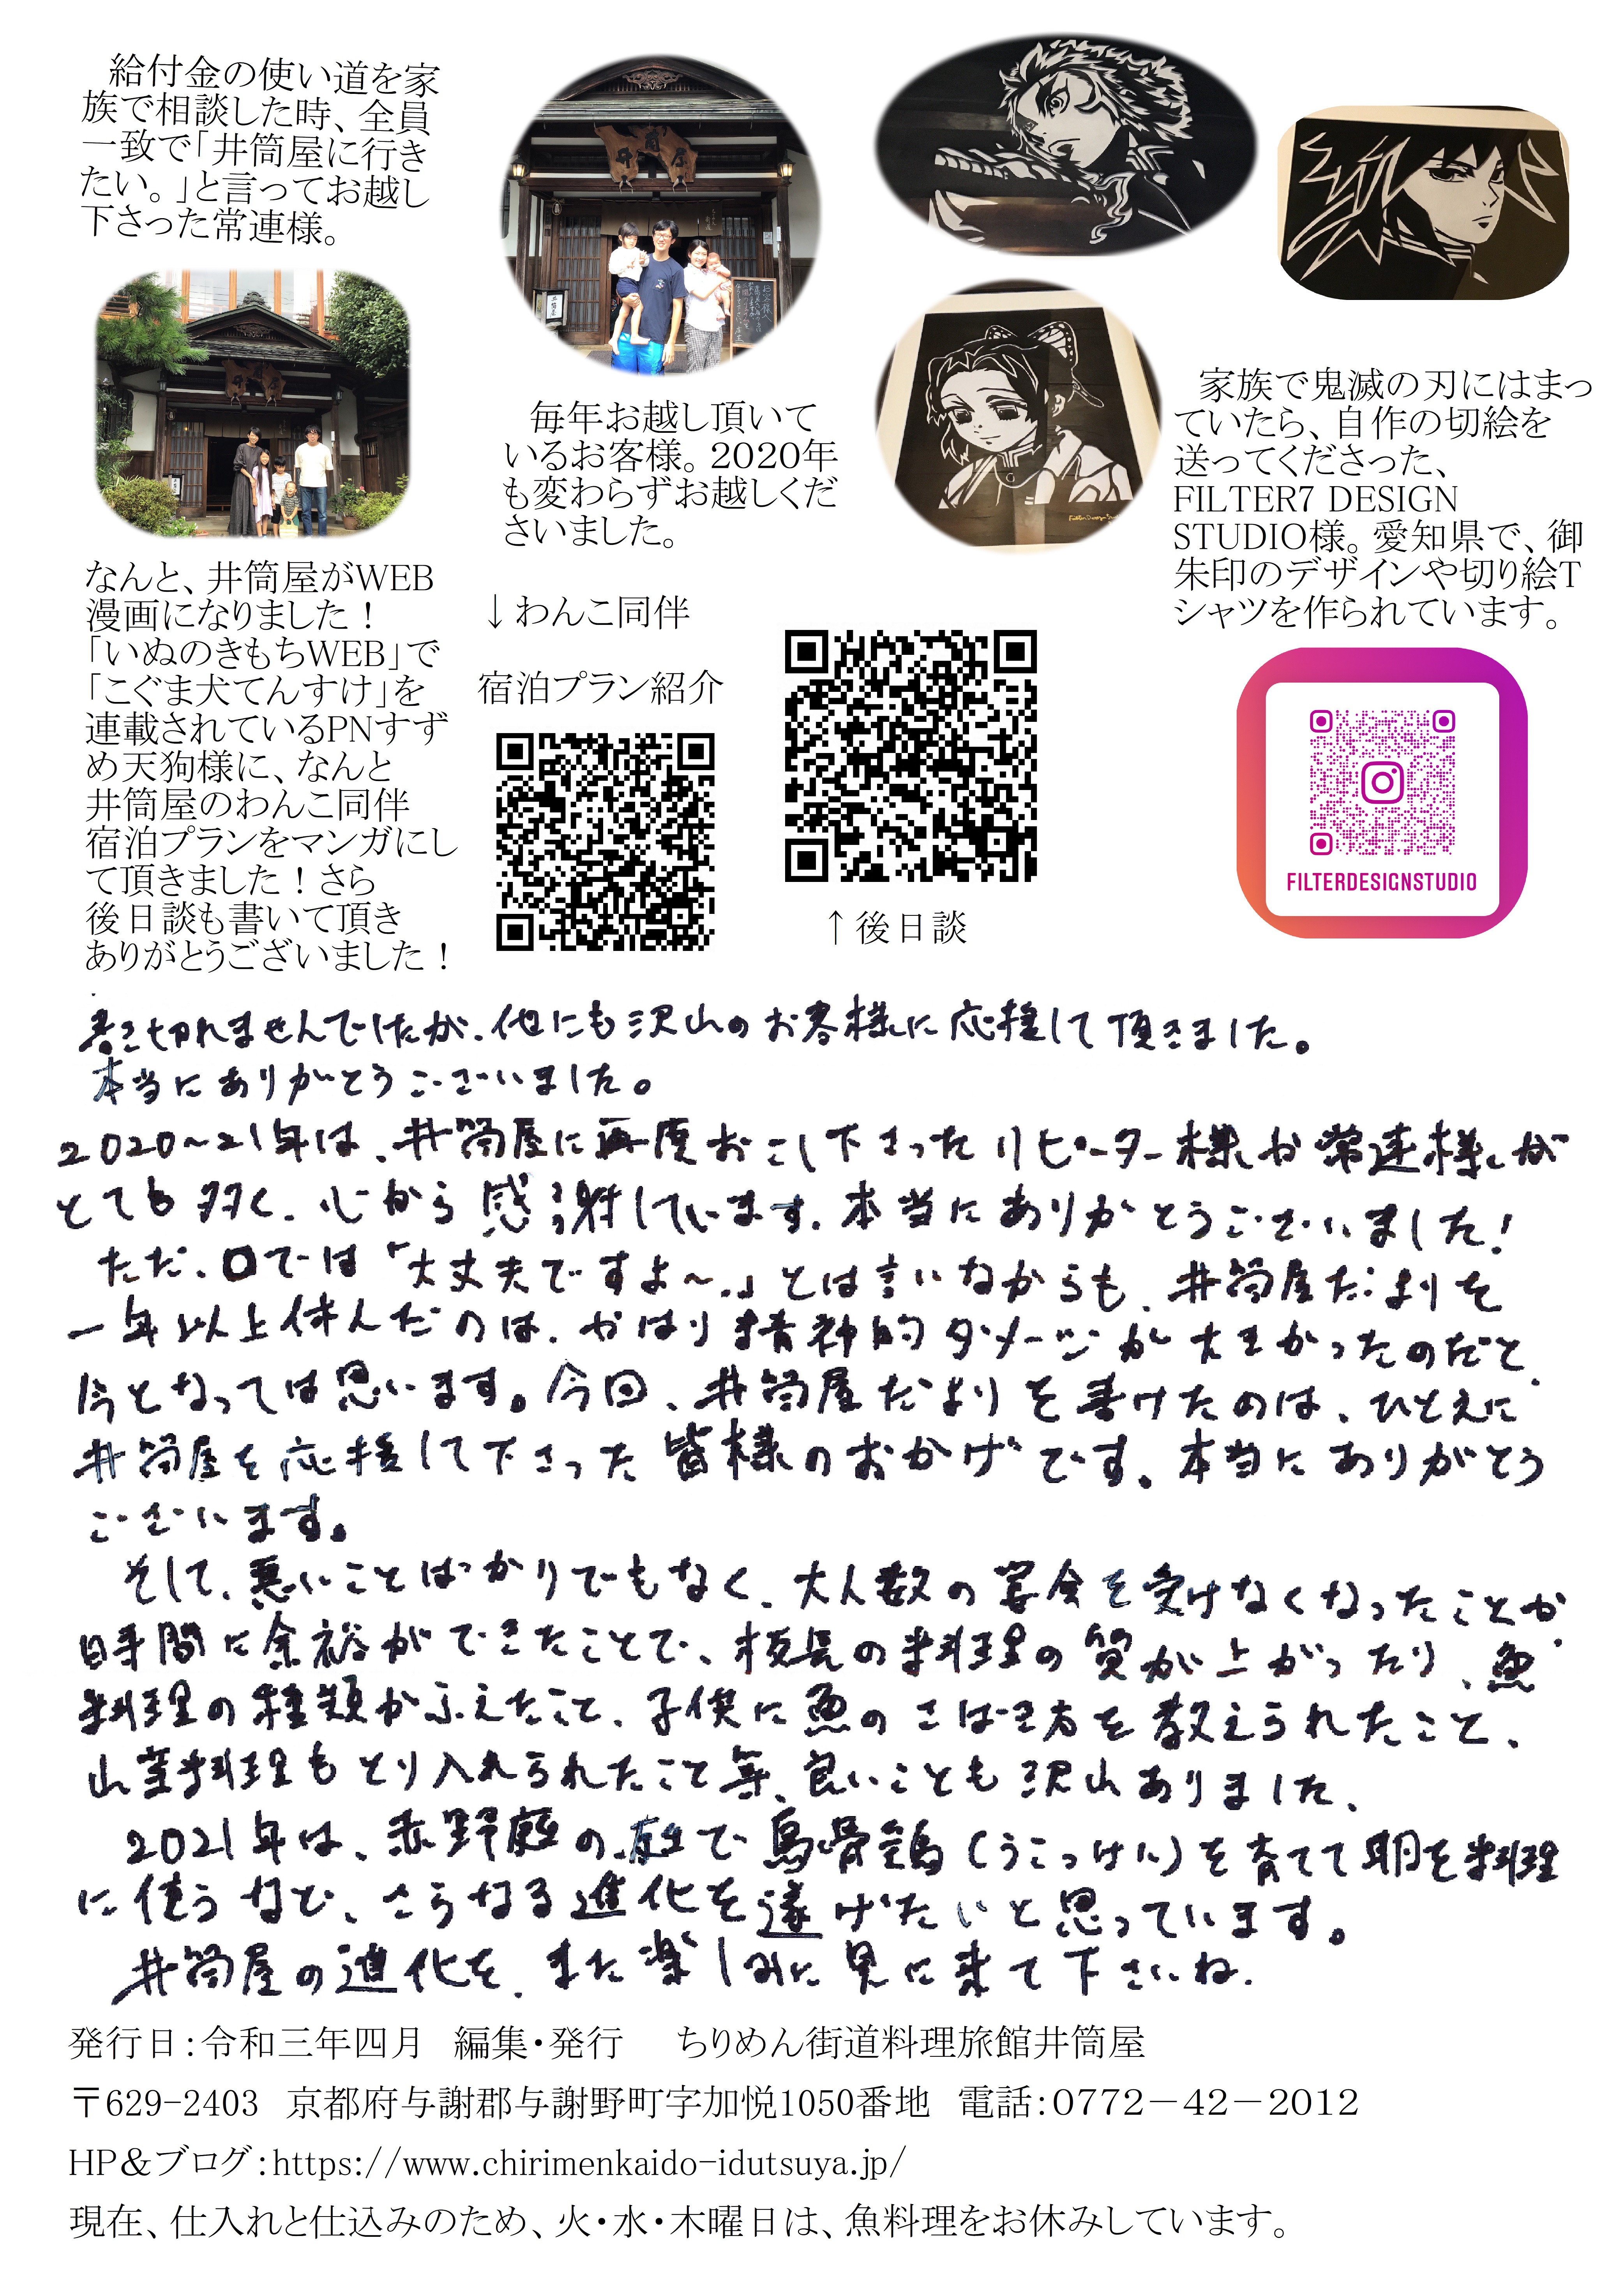 給付金の使い道を家
族で相談した時、全員
一致で「井筒屋に行き
たい。」と言ってお越し
下さった常連様。
井筒屋
井筒屋
毎年お越し頂いて
いるお客様。2020年
も変わらずお越しくだ
さいました。
家族で鬼滅の刃にはまっ
ていたら、自作の切絵を
送ってくださった、
FILTER7 DESIGN
STUDIO様。愛知県で、御
朱印のデザインや切り絵T
シャツを作られています。
なんと、井筒屋がWEB
漫画になりました！
「いぬのきもちWEB」で
「こぐま犬てんすけ」を
連載されているPNすず
め天狗様に、なんと
井筒屋のわんこ同伴
宿泊プランをマンガにし
て頂きました！さら
後日談も書いて頂き
ありがとうございました！
↓わんこ同伴
宿泊プラン紹介
↑後日談
FILTERDESIGNSTUDIO
書き切れませんでしたが、他にも沢山のお客様に応援して頂きました。
本当にありがとうございました。
2020~21年は、井筒屋に再度おこし下さったリピーター様や常連様が
とても多く、心から感謝しています。本当にありがとうございました！
ただ、口では「大丈夫ですよ～。」とは言いながらも、井筒屋だよりを
一年以上休んだのは、やはり精神的ダメージが大きかったのだと、
今となっては思います。今回、井筒屋だよりを書けたのは、ひとえに
井筒屋を応援して下さった皆様のおかげです。本当にありがとう
ございます。
そして、悪いことばかりでもなく、大人数の宴会を受けなくなったことが
時間に余裕ができたことで、板長の料理の質が上がったり、魚
料理の種類がふえたこと、子供に魚のさばき方を教えられたこと、
山菜料理もとり入れられたこと等、良いことも沢山ありました、
2021年は、赤野庭の庭で烏骨鶏（うこっけい）を育てて卵を料理
に使うなど、さらなる進化を遂げたいと思っています。
井筒屋の進化を、また楽しみに見に来て下さいね.
発行日：令和三年四月　編集・発行　ちりめん街道料理旅館井筒屋
〒629-2403　京都府与謝郡与謝野町字加悦1050番地　電話：0772－42－2012
HP＆ブログ：https://www.chirimenkaido-idutsuya.jp/
現在、仕入れと仕込みのため、火・水・木曜日は、魚料理をお休みしています。